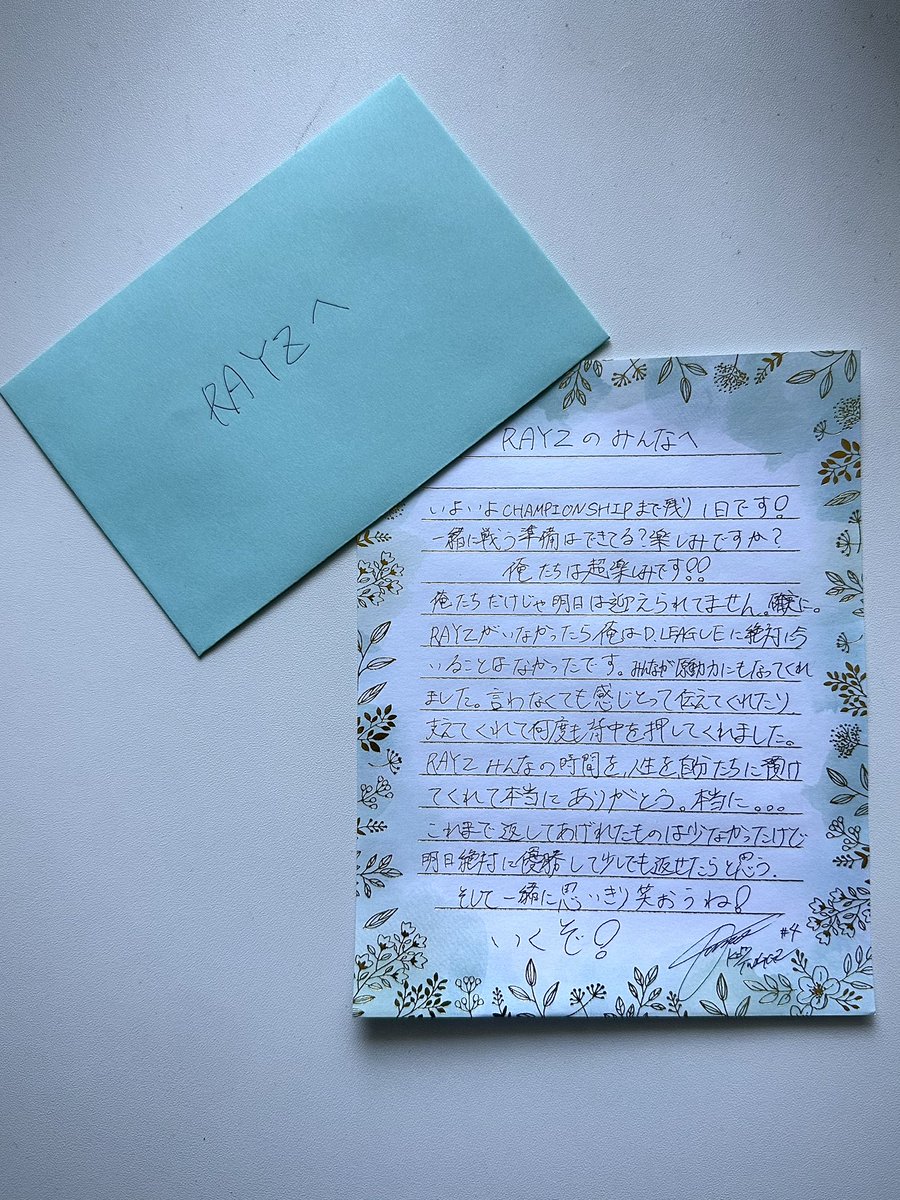 RAYZへ
RAYZのみんなへ
いよいよCHAMPIONSHIPまで残り1日です!
一緒に戦う準備はできてる?楽しみですか?
俺たちは超楽しみです!!
俺たちだけじゃ明日は迎えられてません。確実に。
RAYZがいなかったら俺はD.LEAGUEに絶対に今
いることはなかったです。みんなが原動力にもなってくれ
ました。言わなくても感じとって伝えてくれたり
支えてくれて何度も背中を押してくれました。
RAYZみんなの時間を、人生を自分たちに預け
てくれて本当にありがとう。本当に。。。
これまで返してあげれたものは少なかったけど
明日絶対に優勝して少しでも返せたらと思う.
そして一緒に思いきり笑おうね!
いくぞ!
#4